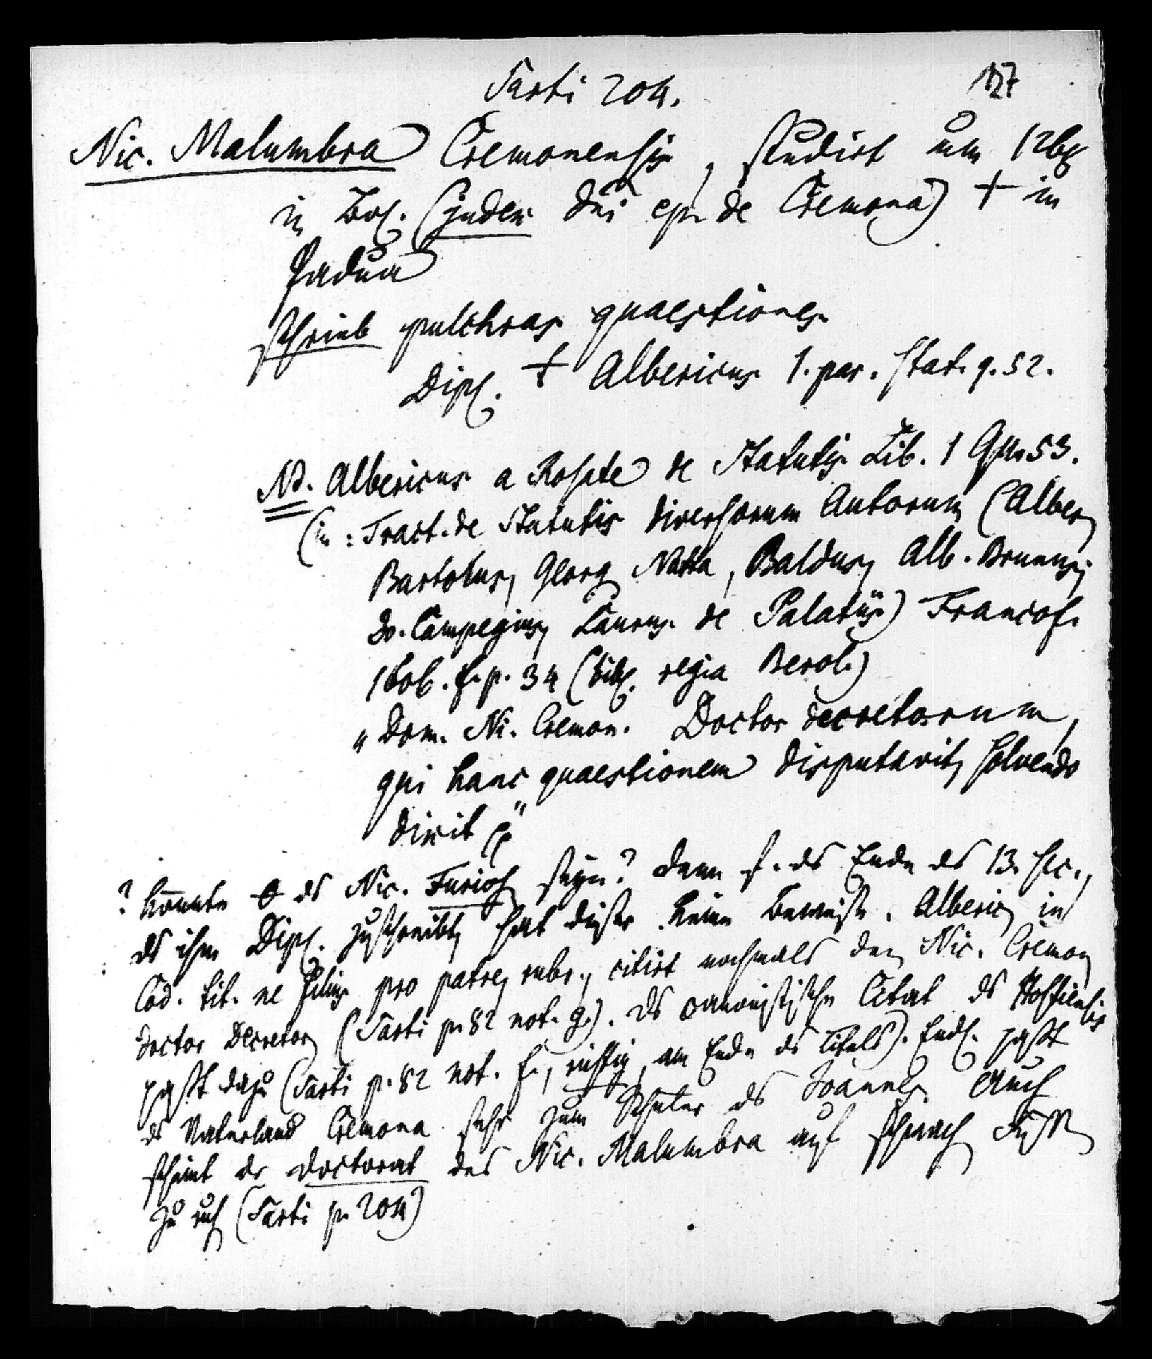 Sarti 204. 127
Nic. Malumbra Cremonensis, studirt um 126
in Bol. (judex dni ep. de Cremona) † in
Padua
schrieb pulchras quaestiones
Dipl. † Albericus 1. par. stat. q. 52.
NB. Albericus a Rosate de Statutis Lib. 1 Qu. 53.
(in: Tract. de Statutis diversorum Autorum (Alber,
Bartolus, Georg Natta, Baldus, Alb. Brunus,
Jo. Campegius, Laurus de Palatiis) Francof.
1606. f. p. 34 (bibl. regia Berol.)
"Dom. Ni. Cremon. Doctor decretorum,
qui hanc quaestionem disputavit, solvendo
dixit"
? könnte ds Nic. Furios seyn? denn f. ds Ende ds 13. Sec.,
ds ihm Dipl. zuschreibt, hat dieser keine Beweise. Alberic, in
Cod. tit. ne filius pro patre, rubr., citirt nochmals den Nic. Cremon
doctor Decretor (Sarti p. 82 not. g.). Ds canonistische Citat ds Hostiensis
paßt dazu (Sarti p. 82 not. f., richtig, am Ende ds Titels). Endl. paßt
ds Vaterland Cremona sehr zum Schüler ds Joannes. Auch
scheint ds doctorat des Nic. Malumbra auf schwach Füßen
zu (Sarti p. 204)